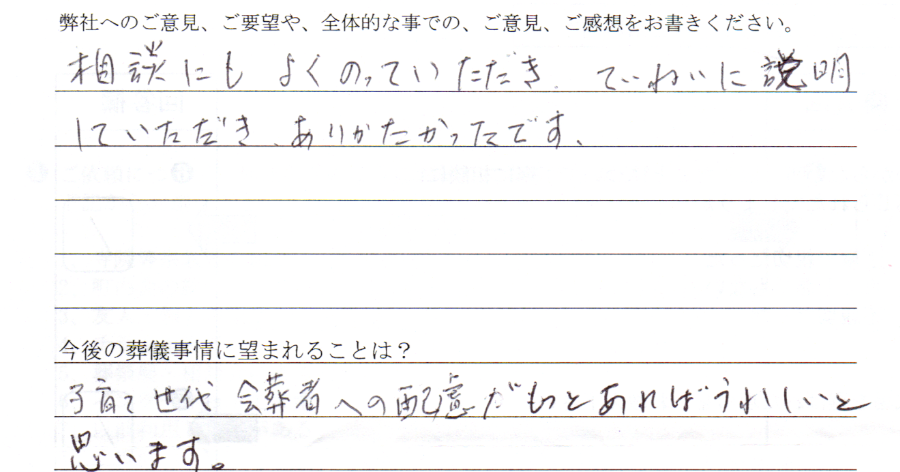 弊社へのご意見、ご要望や、全体的な事での、ご意見、ご感想をお書きください。
相談にも よくのっていただき、ていねいに説明
していただき、ありがたかったです、
今後の葬儀事情に望まれることは？
子育て世代 会葬者への配慮がもっとあればうれしいと
思います。